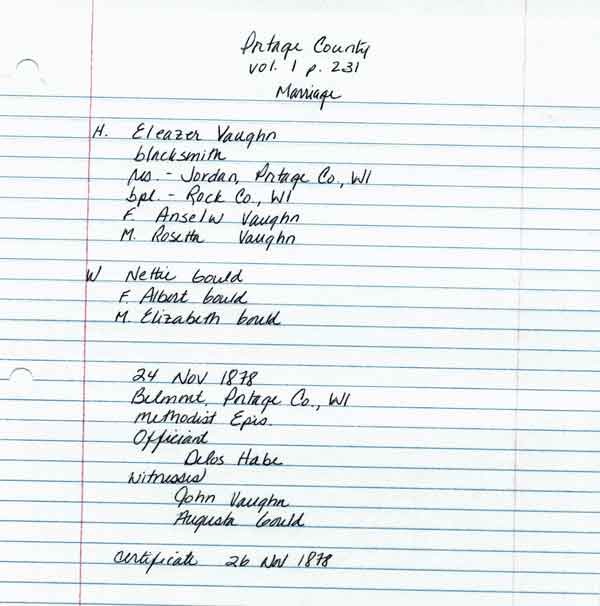 Portage County
vol. 1 p. 231
Marriage
H. Eleazer Vaughn
blacksmith
res. - Jordan, Portage Co., WI
bpl. - Rock Co., WI
F. Anselw Vaughn
M. Rosetta Vaughn
W Nettie Gould
F. Albert Gould
M. Elizabeth Gould
24 Nov 1878
Belmont, Portage Co., WI
Methodist Epis.
Officiant
Delos Habe
Witnesses
John Vaughn
Augusta Gould
Certificate 26 Nov 1878